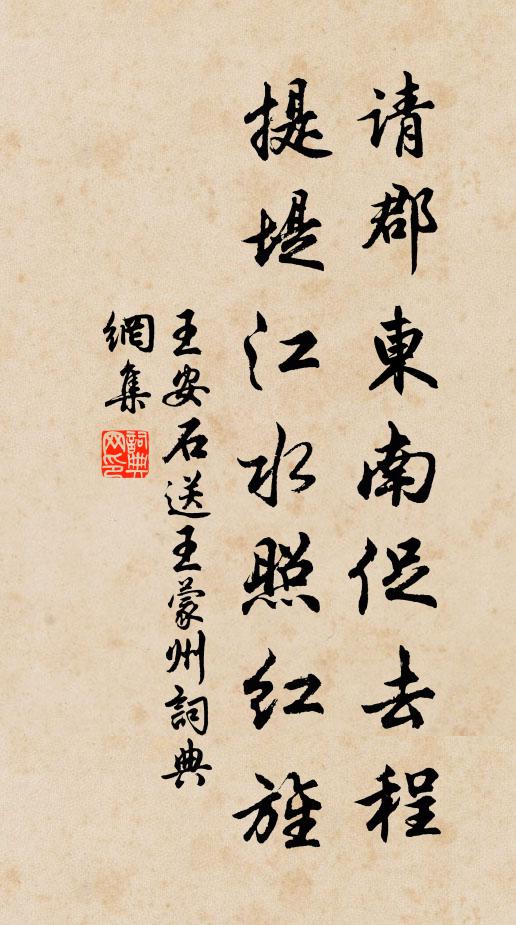 請郡東南促去程
提堤江水照紅旌
王安石送王蒙州詞典
網集
詞典
网印